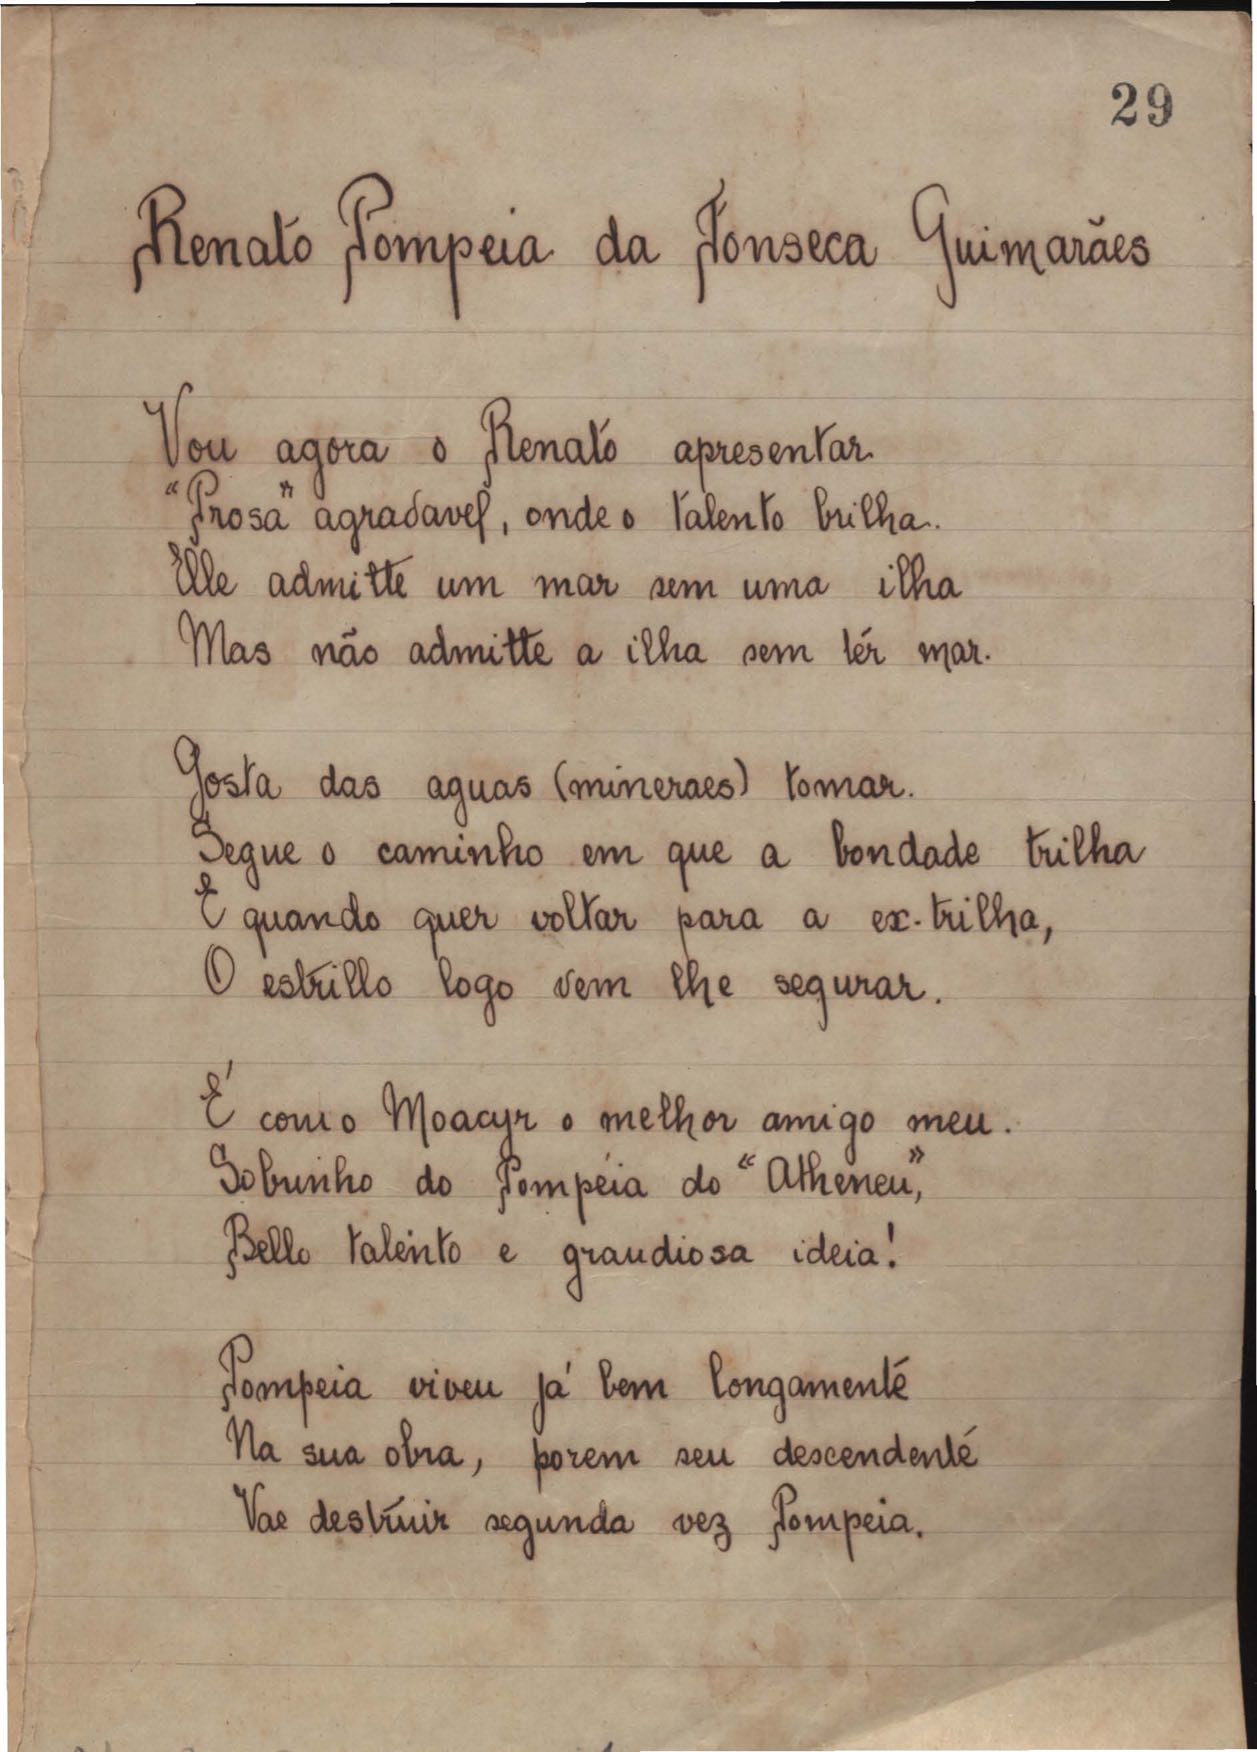 29
Renato Pompeia da Fonseca Guimarães
Vou agora o Renato apresentar
"Prosa" agradavel, onde o talento brilha.
Elle admitte um mar sem uma ilha
Mas não admitte a ilha sem tér mar.
Gosta das aguas (mineraes) tomar.
Segue o caminho em que a bondade trilha
E quando quer voltar para a ex-trilha,
O estrillo logo vem lhe segurar.
É como Moacyr o melhor amigo meu.
Sobrinho do Pompéia do "Atheneu",
Bello talento e grandiosa ideia!
Pompeia viveu já bem longamente
Na sua obra, porem seu descendente
Vae destruir segunda vez Pompeia.